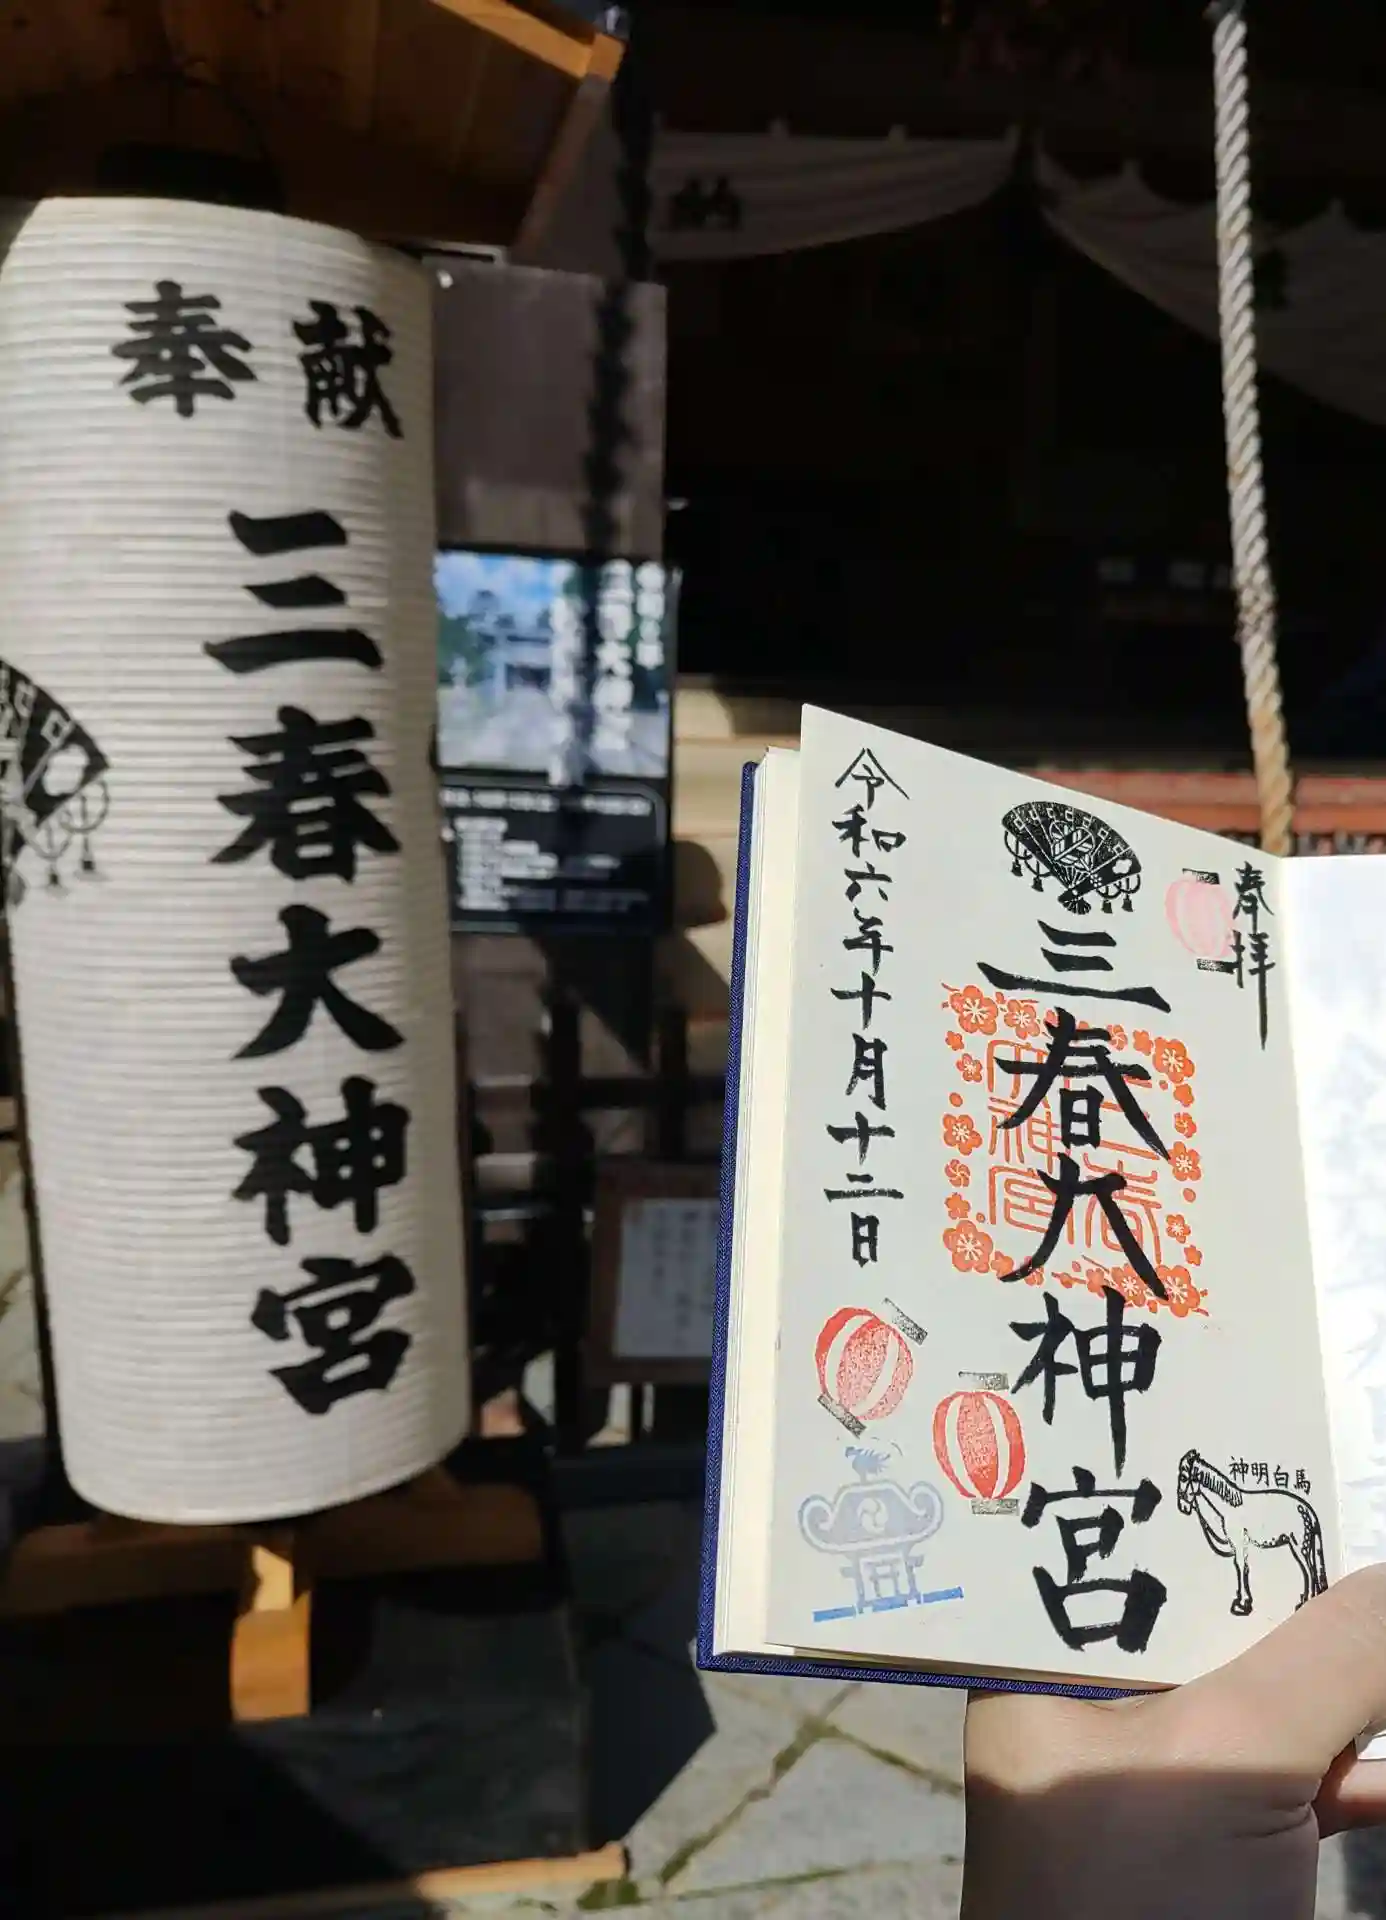 奉献
三春大神宮
奉拝
三春大神宮
令和六年十月十二日
神明白馬
三春大神宮
納